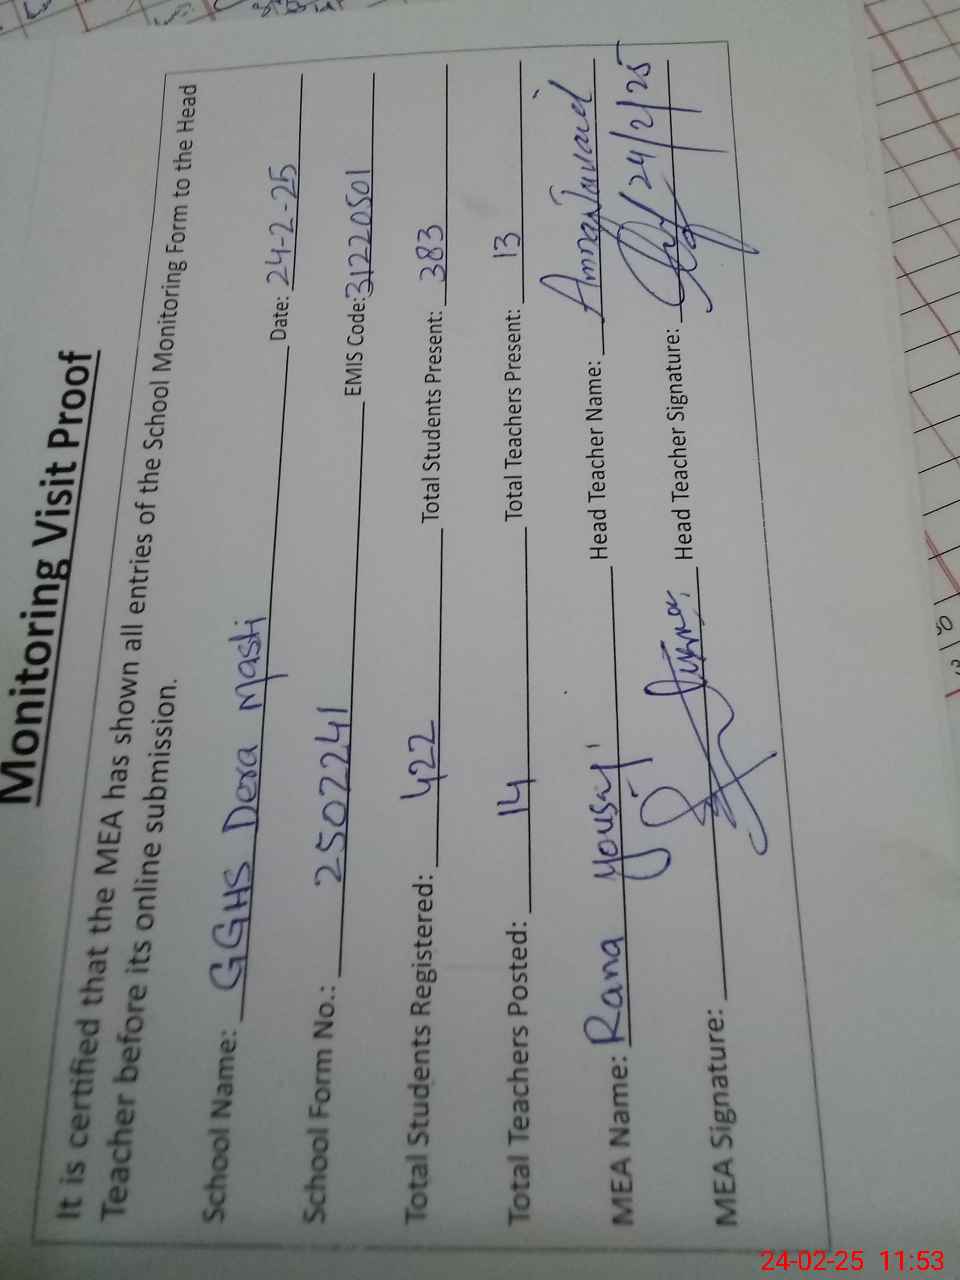 Monitoring Visit Proof
It is certified that the MEA has shown all entries of the School Monitoring Form to the Head
Teacher before its online submission.
School Name: GGHS Dera Mashi Date: 24-2-25
School Form No.: 2507241 EMIS Code: 31220501
Total Students Registered: 422 Total Students Present: 383
Total Teachers Posted: 14 Total Teachers Present: 13
MEA Name: Rana Yousaf Head Teacher Name: Amna Javaid
MEA Signature: Head Teacher Signature: 24/2/25
24-02-25 11:53